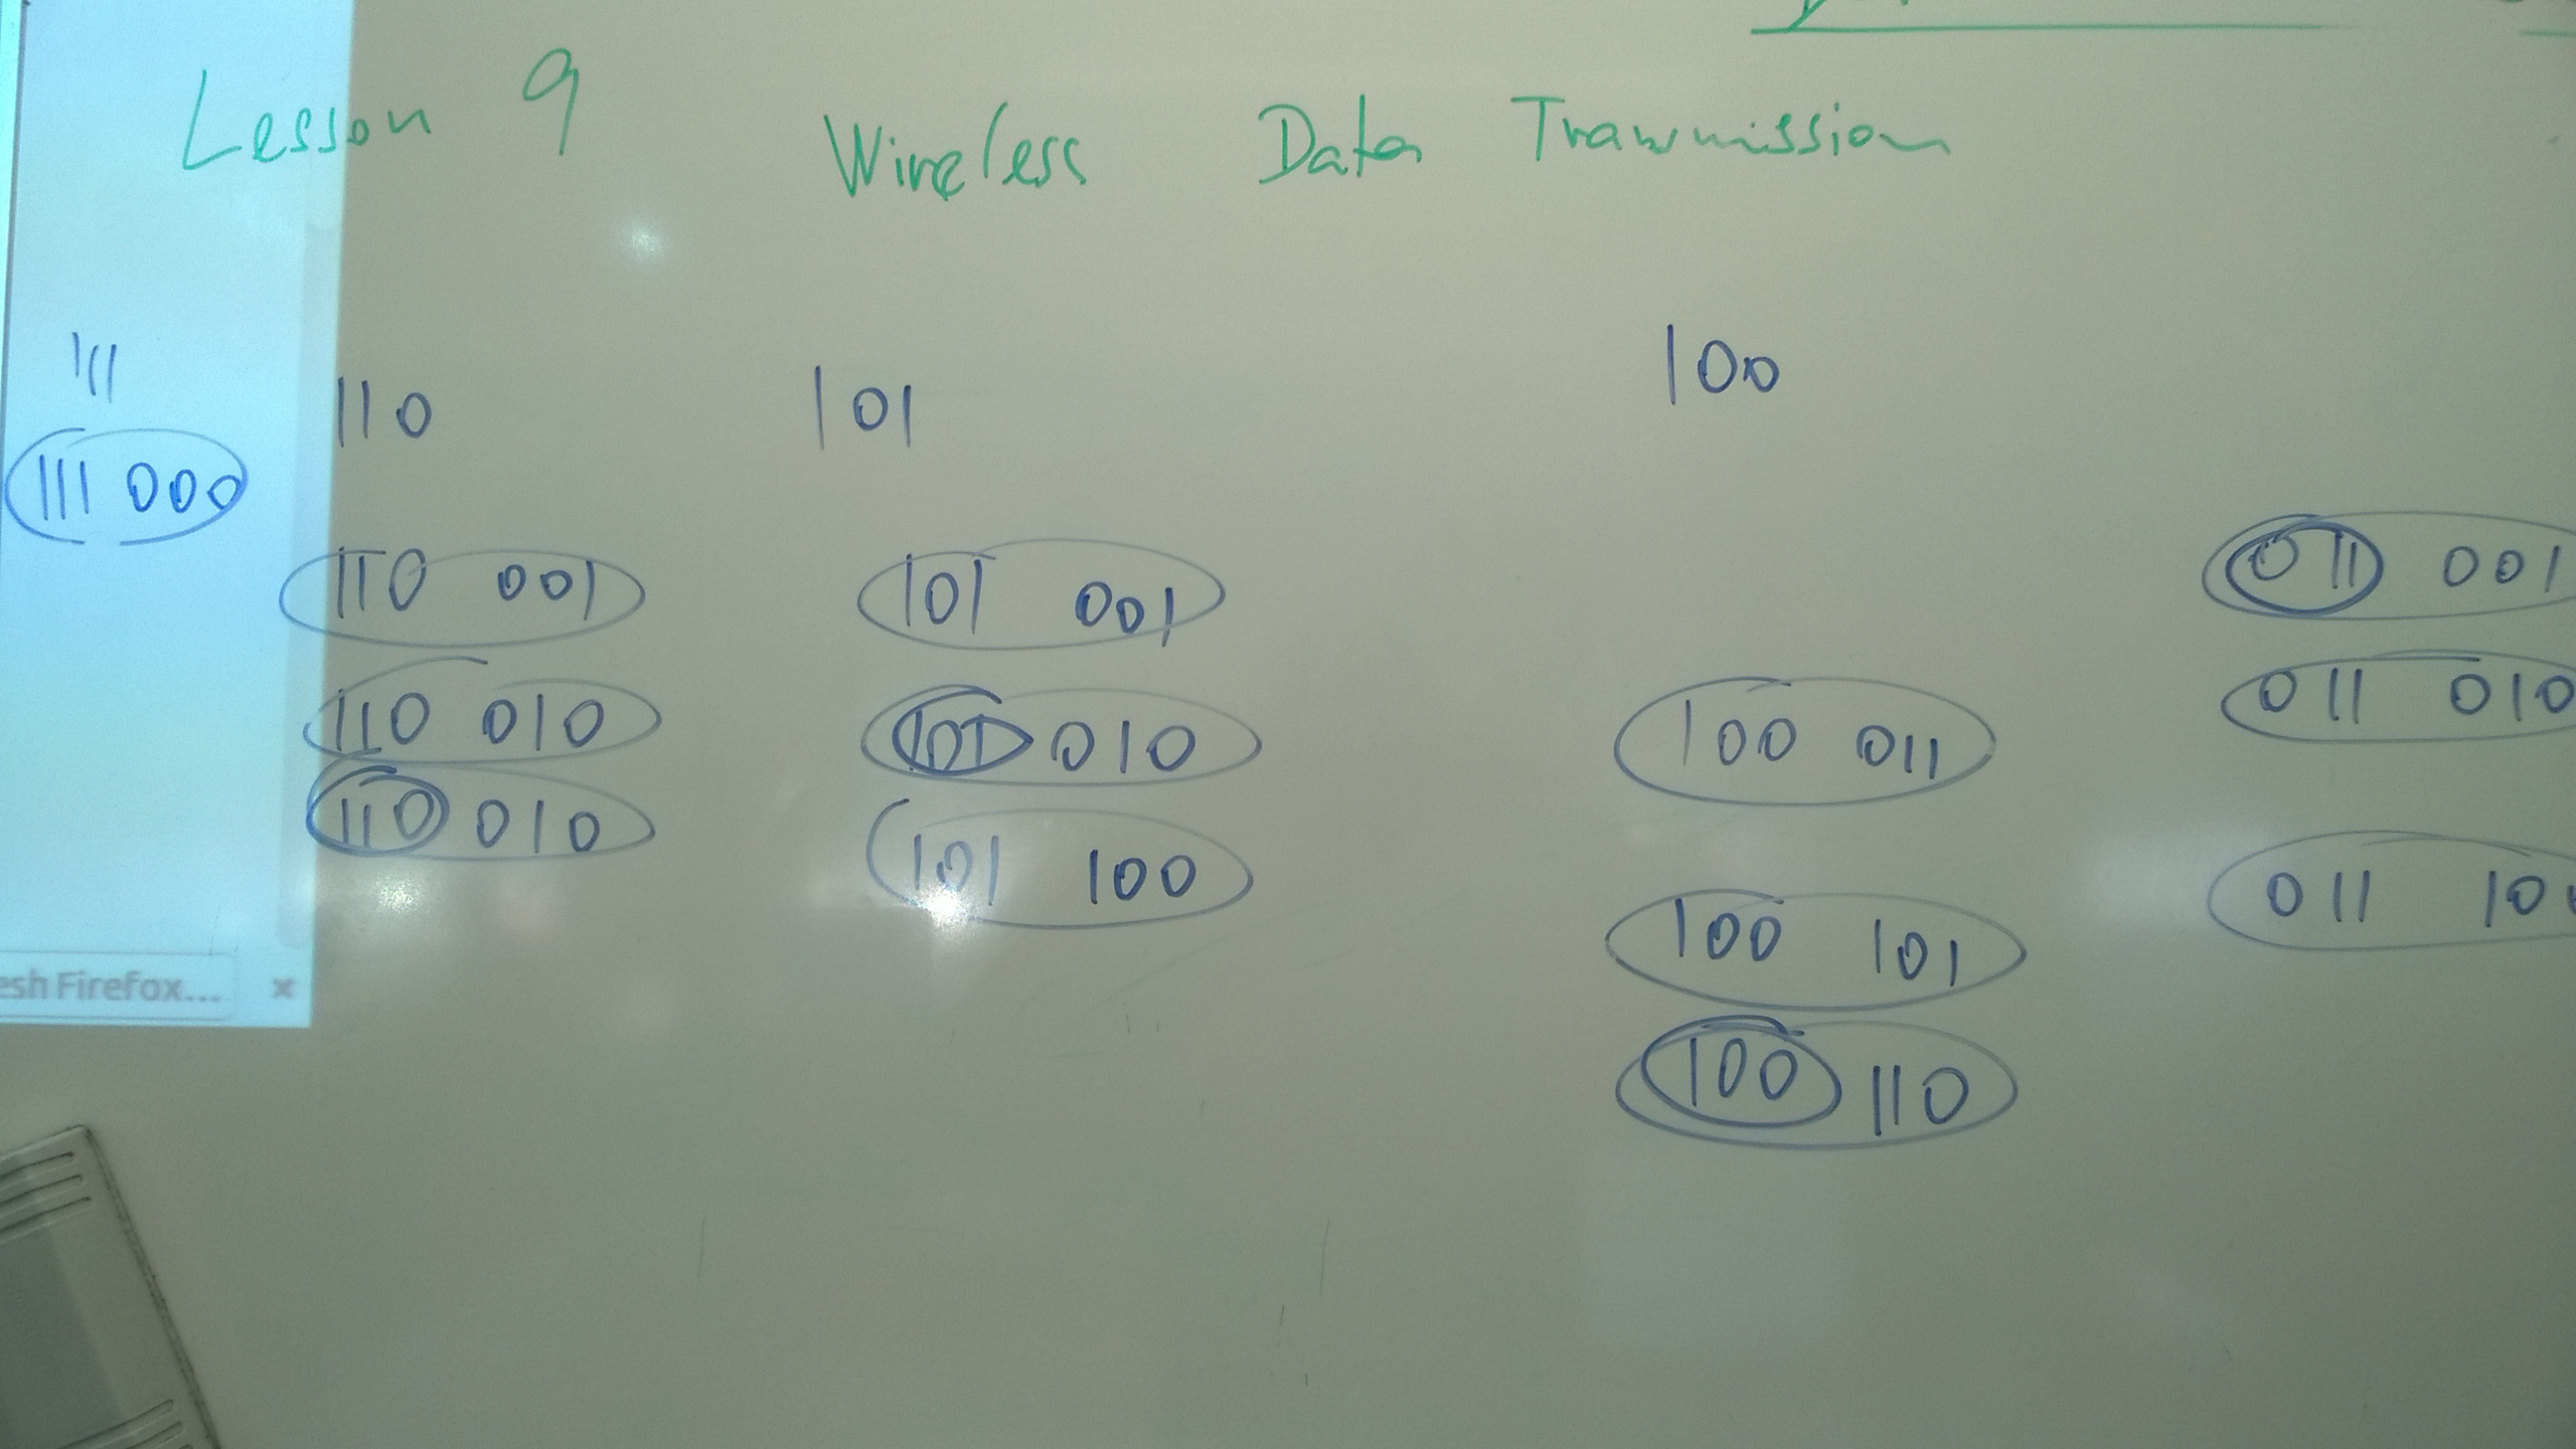 Lesson 9 Wireless Data Transmission
111
110
101
100
111 000
110 001
110 010
110 010
101 001
101 010
101 100
100 011
100 101
100 110
011 001
011 010
011
esh Firefox... x